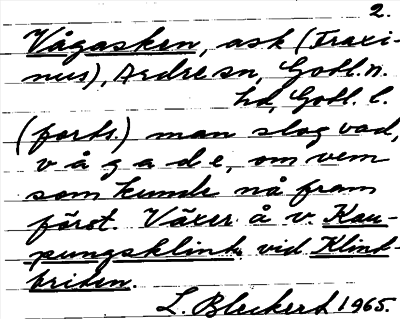 2.
Vågasken, ask (Fraxi-
nus), Ardre sn, Gotl. n.
hd, Gotl. l.
(forts.) man slog vad,
v å g a d e, om vem
som kunde nå fram
först. Växer å v. Kau-
pungsklint vid Klint-
briten.
L. Bleckert 1965.